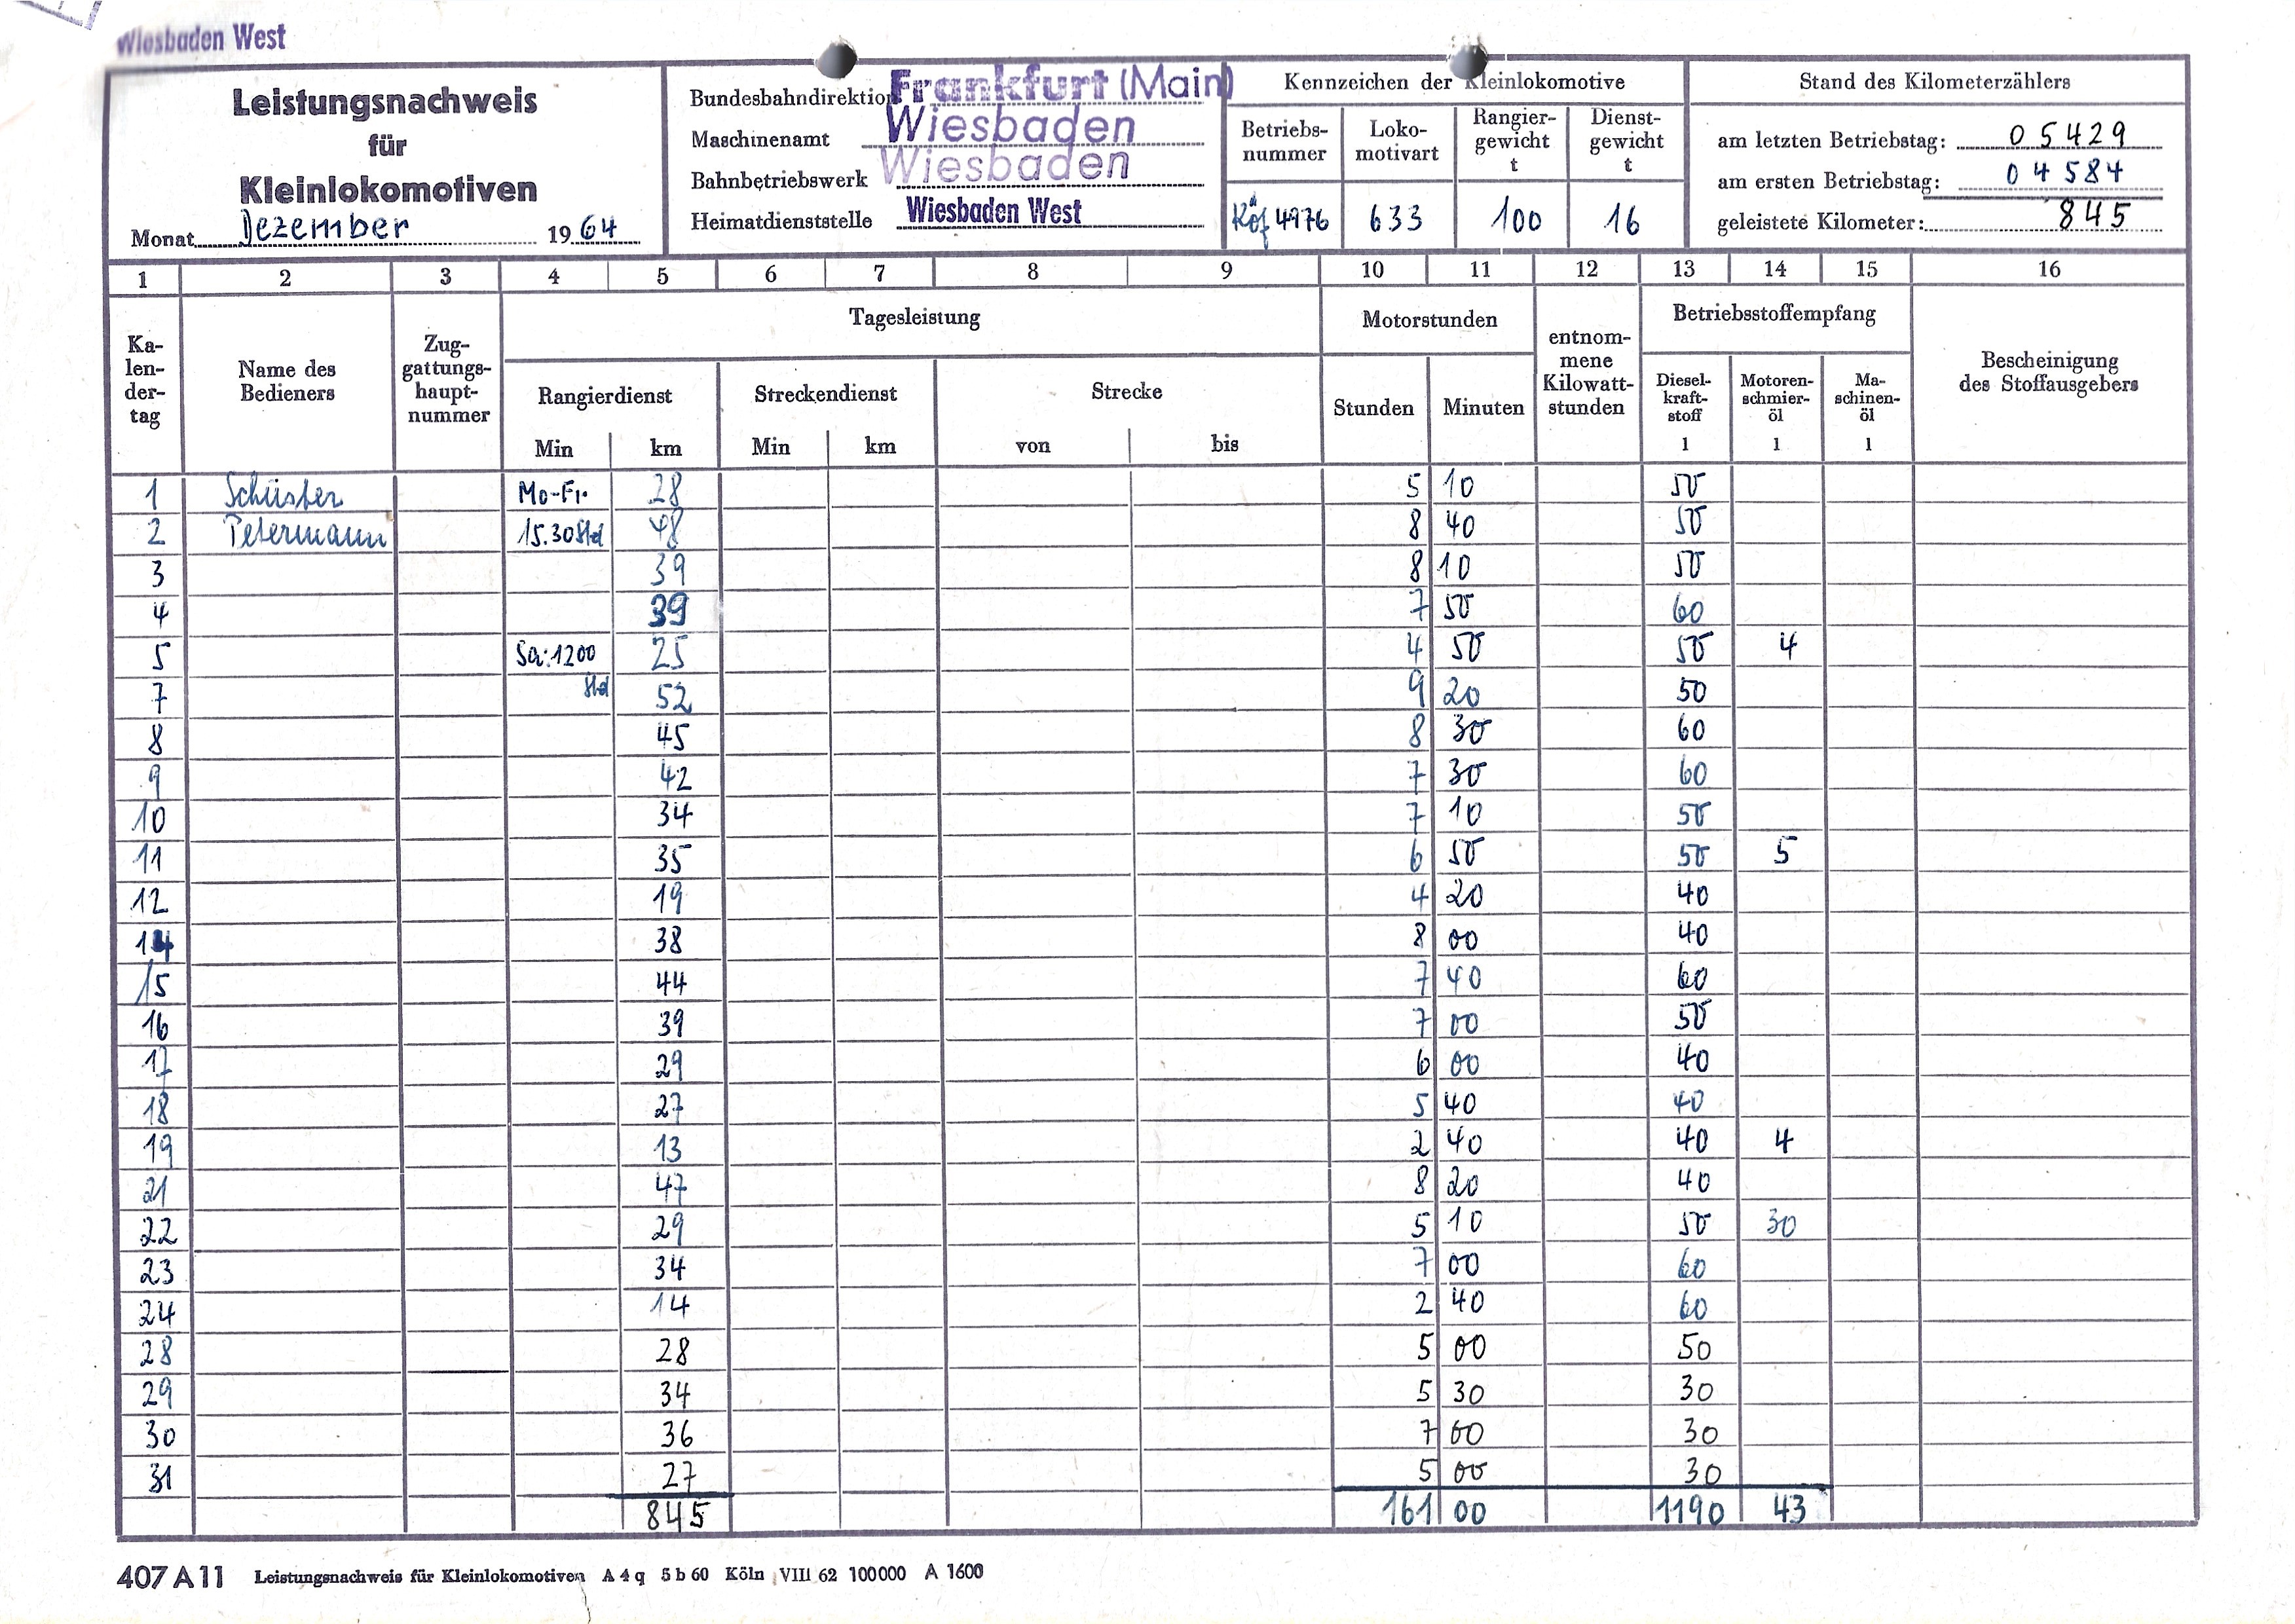 Wiesbaden West
Leistungsnachweis
für
Kleinlokomotiven
Monat Dezember 1964
Bundesbahndirektion Frankfurt (Main)
Maschinenamt Wiesbaden
Bahnbetriebswerk Wiesbaden
Heimatdienststelle Wiesbaden West
Kennzeichen der Kleinlokomotive
Betriebs-
nummer
Loko-
motivart
Rangier-
gewicht
t
Dienst-
gewicht
t
Köf 4976 633 100 16
Stand des Kilometerzählers
am letzten Betriebstag: 05429
am ersten Betriebstag: 04584
geleistete Kilometer: 845
1 2 3 4 5 6 7 8 9 10 11 12 13 14 15 16
Ka-
len-
der-
tag
Name des
Bedieners
Zug-
gattungs-
haupt-
nummer
Tagesleistung
Rangierdienst
Min km
Streckendienst
Min km
Strecke
von bis
Motorstunden
Stunden Minuten
entnom-
mene
Kilowatt-
stunden
Betriebsstoffempfang
Diesel-
kraft-
stoff
l
Motoren-
schmier-
öl
l
Ma-
schinen-
öl
l
Bescheinigung
des Stoffausgebers
1 Schüster Mo-Fr. 28 5 10 50
2 Petermann 15.30 Std 48 8 40 50
3 39 8 10 50
4 39 7 50 60
5 Sa: 1200 25 4 50 50 4
7 Std 52 9 20 50
8 45 8 30 60
9 42 7 30 60
10 34 7 10 50
11 35 6 50 50 5
12 19 4 20 40
14 38 8 00 40
15 44 7 40 60
16 39 7 00 50
17 29 6 00 40
18 27 5 40 40
19 13 2 40 40 4
21 47 8 20 40
22 29 5 10 50 30
23 34 7 00 60
24 14 2 40 60
28 28 5 00 50
29 34 5 30 30
30 36 7 00 30
31 27 5 00 30
845 161 00 1190 43
407 A 11 Leistungsnachweis für Kleinlokomotiven A 4 q 5 b 60 Köln VIII 62 100000 A 1600